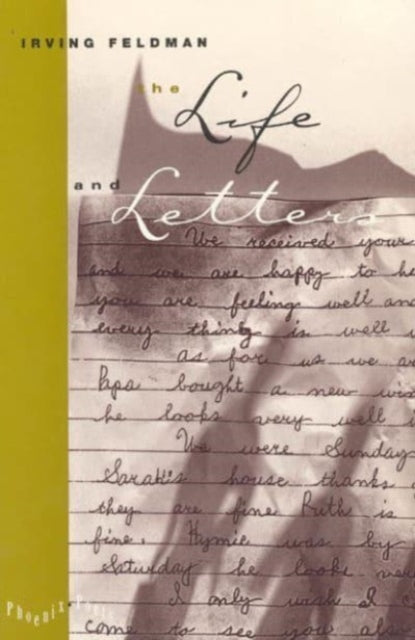 IRVING FELDMAN
the
Life
and
Letters
We received yours
and we are happy to he
you are feeling well and
every thing is well
as for us we ar
Papa bought a new
he looks very well i
We were Sunday
Sarah's house thanks
they are fine Ruth is
fine. Hymie was by
Saturday he looks ver
I only wish I
come to see you
Phoenix Poets